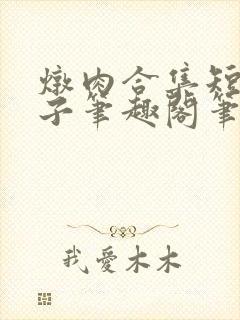 燉肉合集短
子筆趣閣筆
我愛木木